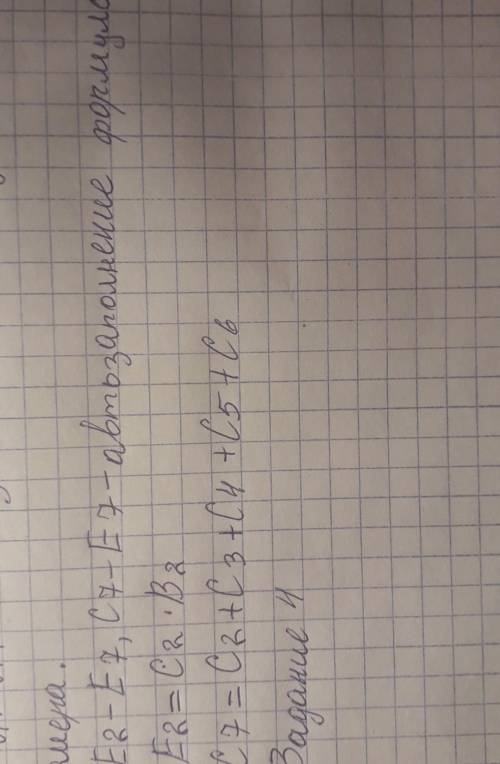 мера.
E2-E7, C7-E7-автозаполнение формуло
E2=C2·B2
C7=C2+C3+C4+C5+C6
Задание 4